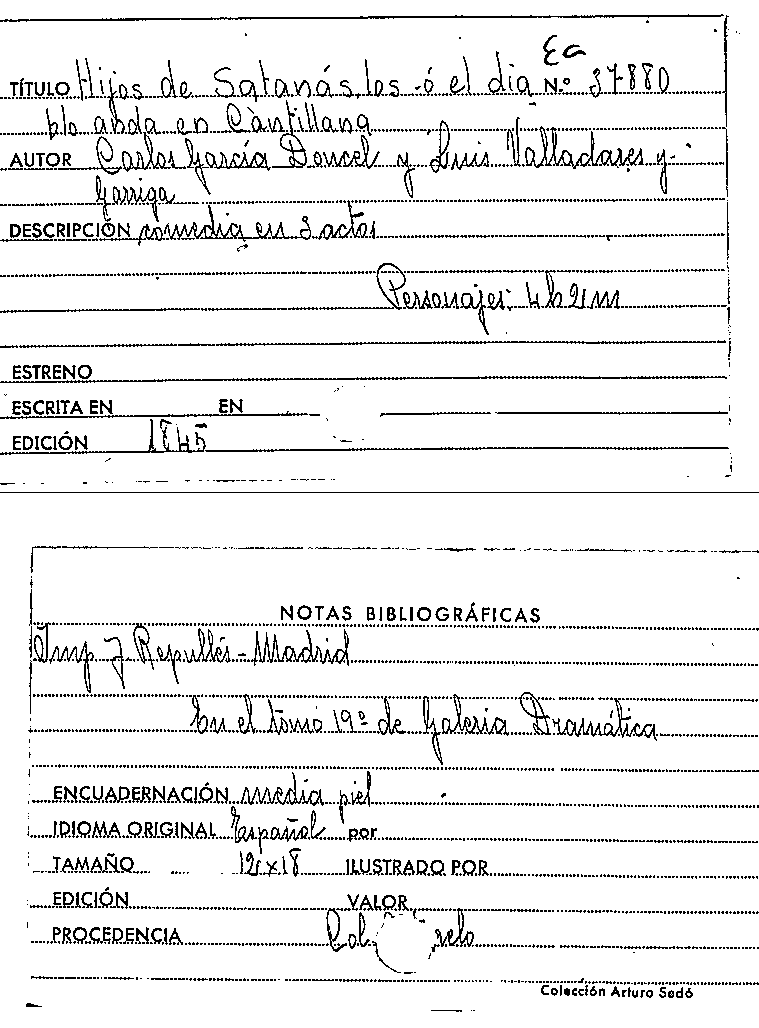 Ea
TÍTULO Hijos de Satanás, los -ó el dia N.º 37880
blo anda en Cantillana
AUTOR Carlos García Doncel y Luis Valladares y
Garriga
DESCRIPCIÓN comedia en 3 actos
Personajes: 4h 2m
ESTRENO
ESCRITA EN EN
EDICIÓN 1845
NOTAS BIBLIOGRÁFICAS
Imp J. Repullés - Madrid
En el tomo 19º de Galeria Dramática
ENCUADERNACIÓN media piel
IDIOMA ORIGINAL Español por
TAMAÑO 12x18 ILUSTRADO POR
EDICIÓN VALOR
PROCEDENCIA Col
Colección Arturo Sedó